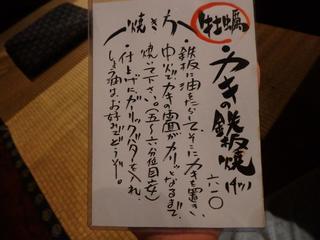 牡蠣
・カキの鉄板焼(4ヶ)
六一〇
(焼き方)
・鉄板に油をたらして、そこにカキを置き、
中火でカキの面がカリッとなるまで
焼いて下さい。(五〜六分位目安)
・仕上げにガーリックバターを入れ、
しょう油は、お好みでどうぞ。